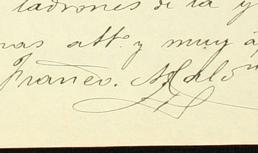 ladrones de la y
nas att.º y muy a
Franco. M. Calvo